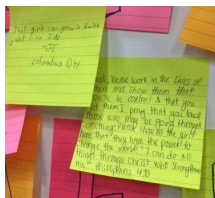 That girls can grow in faith
Columbus OH
God, Please work in the lives of
them and show them that
you're in control & that you
I pray that you touch
those who may be going through
something. Please show to the girls
here that they have the power to
change the world. "I can do all
things through Christ who strengthens
me" Philippians 4:13